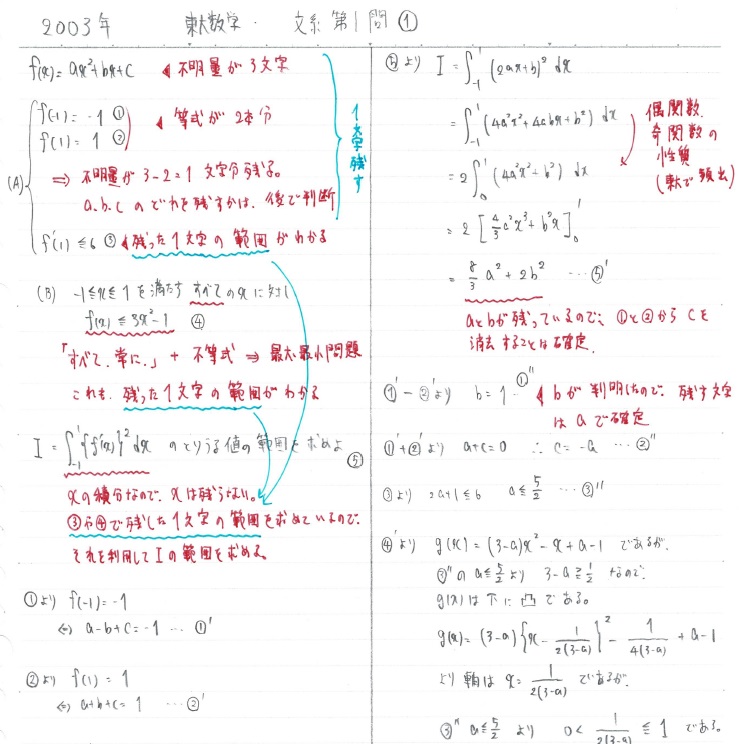 2003年 東大数学 文系 第1問 ①
f(x) = ax²+bx+c ◀ 不明量が3文字
(A)
f(-1) = -1 ①
f(1) = 1 ②
◀ 等式が2本分
⇒ 不明量が 3-2=1 文字分残る。
a.b.c のどれを残すかは、後で判断
f'(1) ≦ 6 ③ ◀ 残った1文字の範囲がわかる
1文字残す
(B) -1≦x≦1 を満たす すべてのxに対し
f(x) ≦ 3x²-1 ④
「すべて、常に、」 + 不等式 ⇒ 最大・最小問題
これも、残った1文字の範囲がわかる
I = ∫₋₁¹ {f'(x)}² dx のとりうる値の範囲を求めよ ⑤
xの積分なので、xは残らない。
③や④で残した1文字の範囲を求めているので、
それを利用して I の範囲を求める。
①より f(-1) = -1
⇔ a-b+c = -1 … ①'
②より f(1) = 1
⇔ a+b+c = 1 … ②'
⑤より I = ∫₋₁¹ (2ax+b)² dx
= ∫₋₁¹ (4a²x²+4abx+b²) dx
= 2∫₀¹ (4a²x²+b²) dx
偶関数、
奇関数の
性質
(東大で頻出)
= 2 [4/3 a²x³ + b²x]₀¹
= 8/3 a² + 2b² … ⑤'
aとbが残っているので、①と②から c を
消去することは確定.
①'-②'より b=1 …①'' ◀ bが判明したので、残す文字
は a で確定
①'+②'より a+c=0 ∴ c=-a … ②''
③より 2a+1≦6 a≦5/2 … ③''
④'より g(x) = (3-a)x² - x + a-1 であるが、
③''の a≦5/2 より 3-a≧1/2 なので、
g(x)は下に凸である。
g(x) = (3-a){x - 1/2(3-a)}² - 1/4(3-a) + a-1
より 軸は x = 1/2(3-a) であるが、
③'' a≦5/2 より 0< 1/2(3-a) ≦ 1 である。